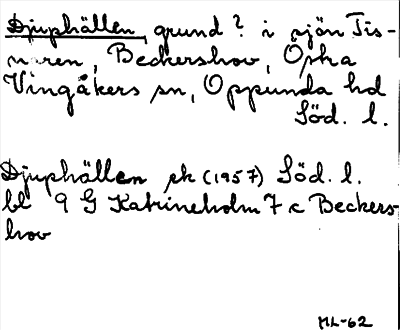 Djuphällen, grund? i sjön Tis-
naren, Beckershov, Östra
Vingåkers sn, Oppunda hd
Söd. l.
Djuphällen ek (1957) Söd. l.
bl 9 G Katrineholm 7 c Beckers-
hov
ML-62